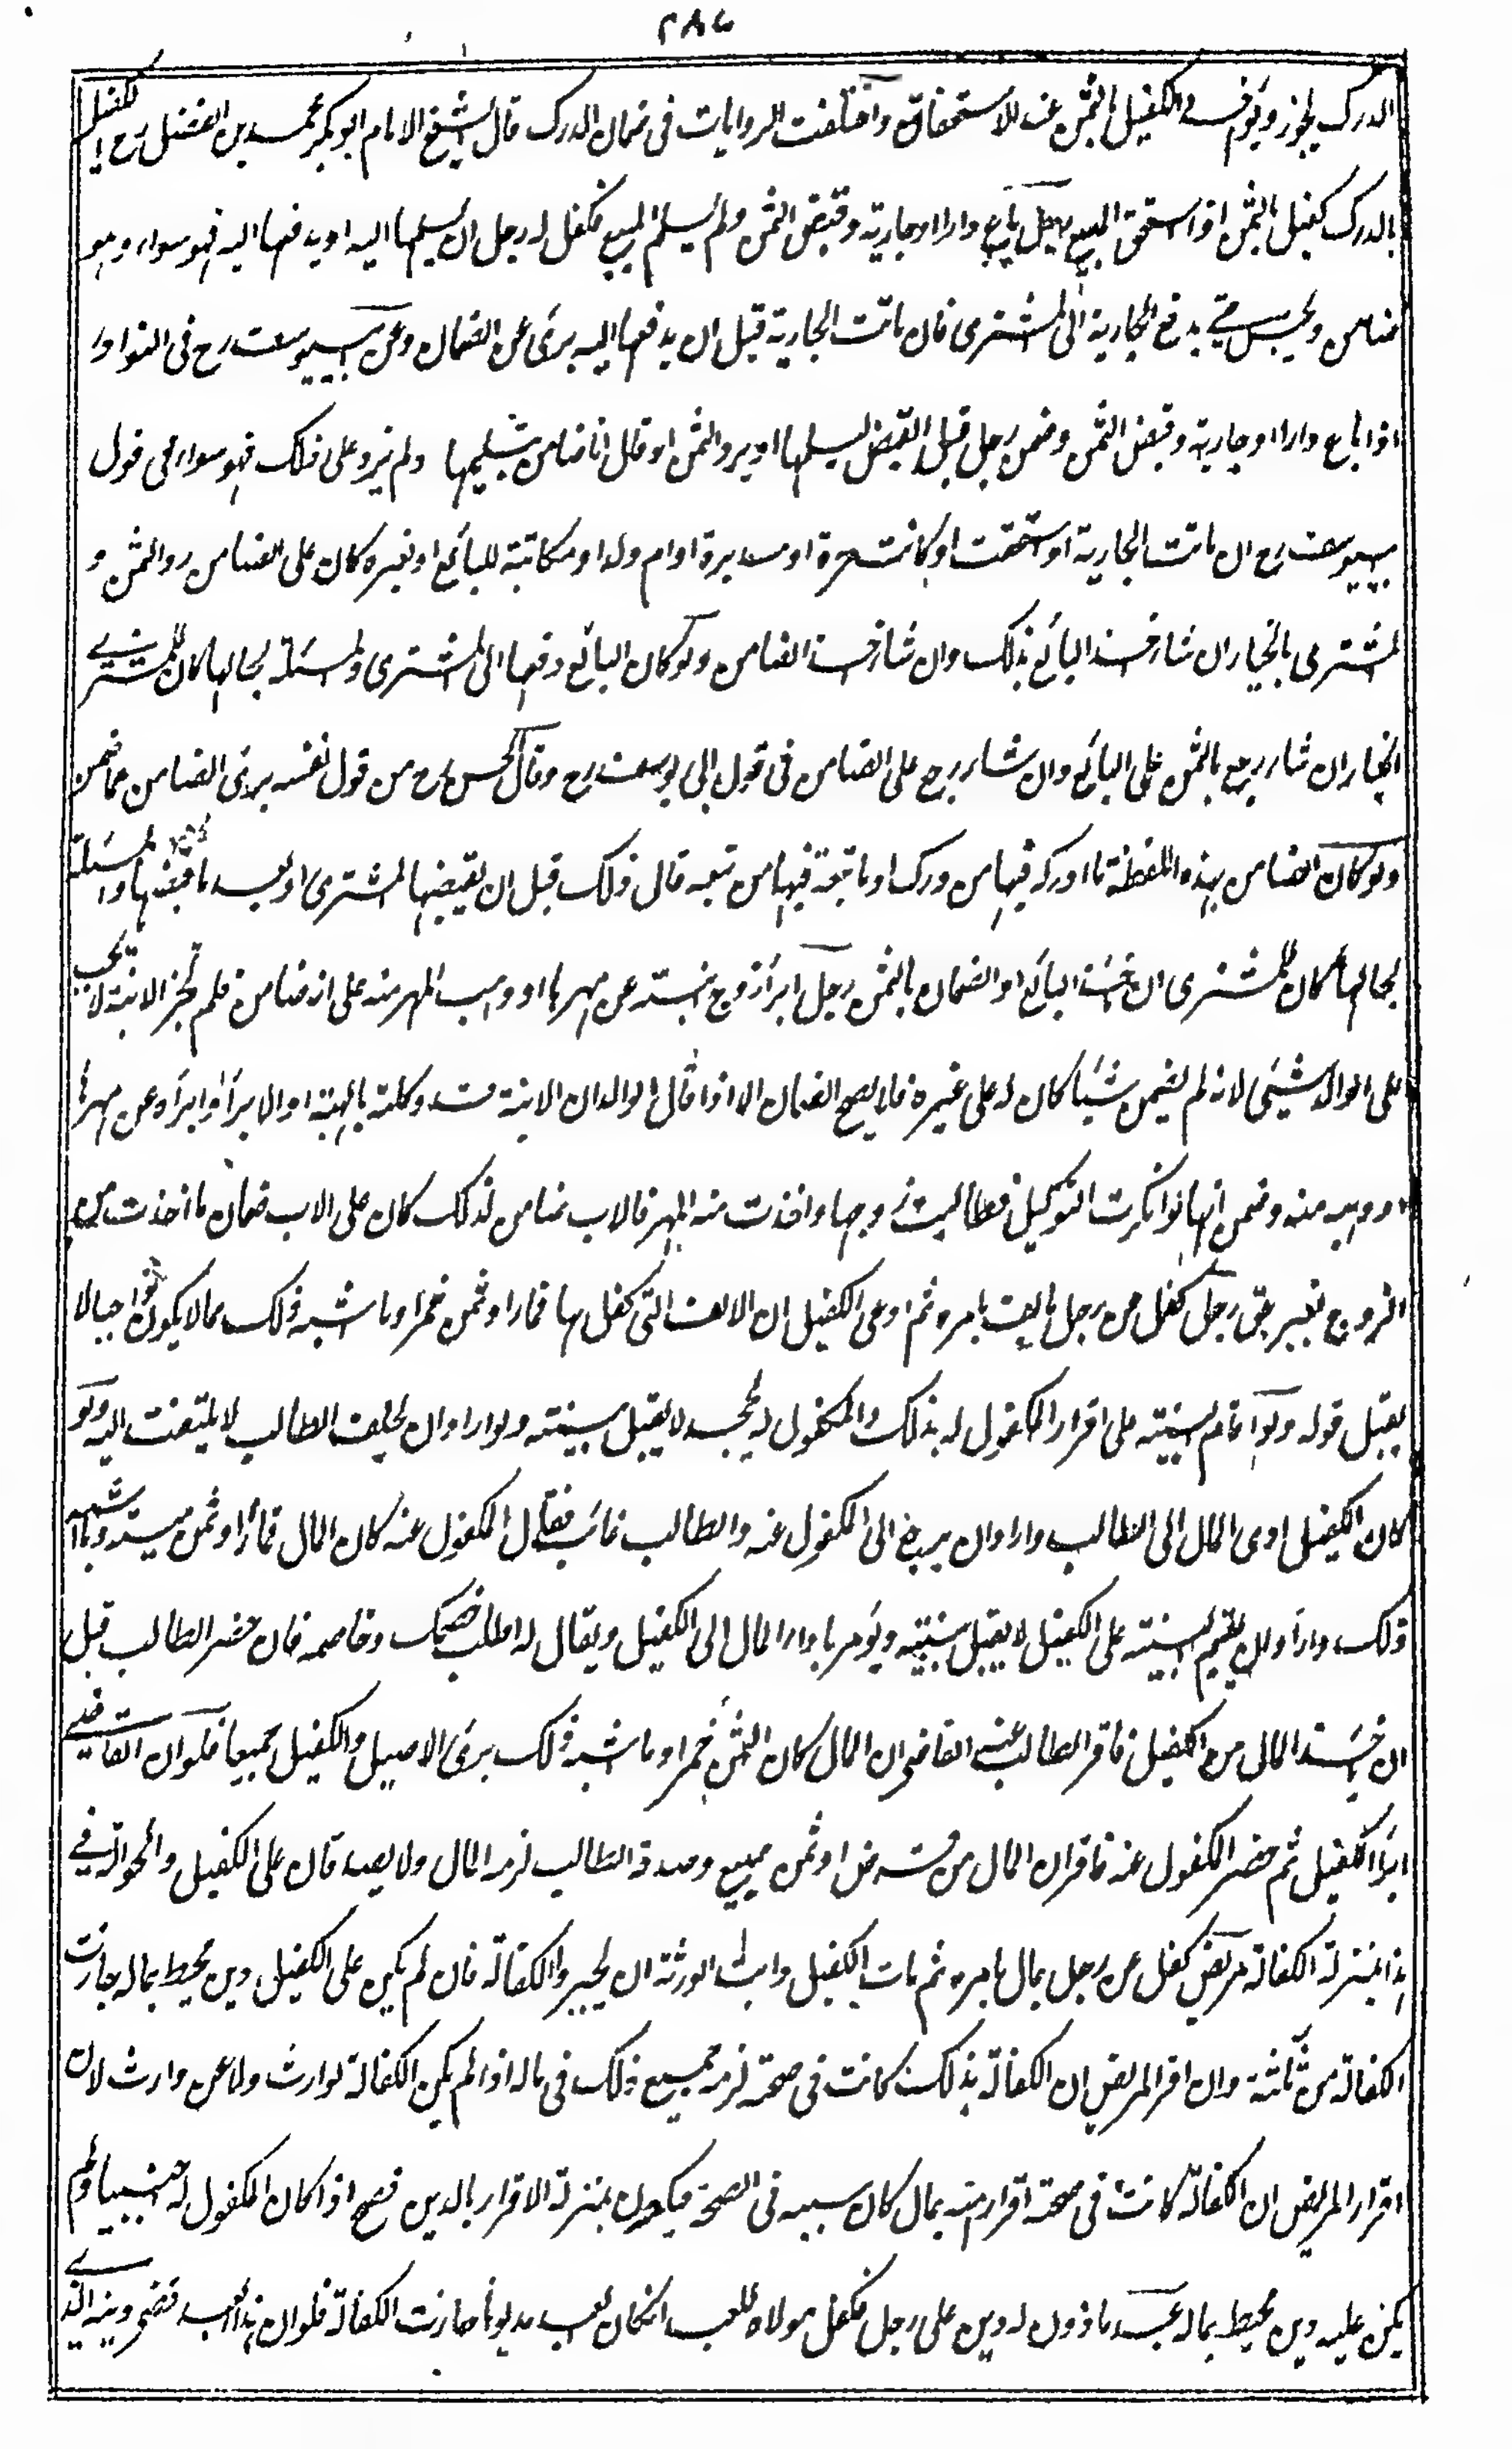 ٢٨٧
الدرك يجوز ويؤخذ الكفيل بالثمن عند الاستحقاق واختلفت الروايات فى ضمان الدرك قال الشيخ الامام ابو بكر محمد بن الفضل رح الكفيل
بالدرك كفيل بالثمن اذا استحق المبيع رجل باع دارا او جارية وقبض الثمن ولم يسلم المبيع فكفل له رجل ان يسلمها اليه او يدفعها اليه فهو سواء وهو
ضامن ويحبس حتى يدفع الجارية الى المشترى فان ماتت الجارية قبل ان يدفعها اليه برئ عن الضمان وعن ابى يوسف رح فى النوادر
اذا باع دارا او جارية وقبض الثمن وضمن رجل قبل القبض ليسلمها او يرد الثمن او قال انا ضامن بتسليمها ولم يزد على ذلك فهو سواء فى قول
ابى يوسف رح ان ماتت الجارية او استحقت او كانت حرة او مدبرة او ام ولد او مكاتبة للبائع او لغيره كان على الضامن رد الثمن و
المشترى بالخيار ان شاء اخذ البائع بذلك وان شاء اخذ الضامن ولو كان البائع دفعها الى المشترى والمسئلة بحالها كان للمشترى
الخيار ان شاء رجع بالثمن على البائع وان شاء رجع على الضامن فى قول ابى يوسف رح وقال الحسن رح من قول نفسه برئ الضامن مما ضمن
ولو كان الضامن بهذه اللفظة ما ادركه فيها من درك او ما تبعه فيها من تبعه قال ذلك قبل ان يقبضها المشترى او بعد ما قبضها والمسئلة
بحالها كان للمشترى ان ياخذ البائع او الضمان بالثمن رجل ابرأ زوج ابنته عن مهرها او وهب المهر منه على انه ضامن فلم تجز الابنة لا يجب
على الوالد شيئ لانه لم يضمن شيئا كان له على غيره فلا يصح الضمان الا اذا قال الوالد ان الابنة قد وكلته بالهبة او الابراء وابراه عن مهرها
او وهبه منه وضمن انها لو انكرت التوكيل فطالبت زوجها واخذت منه المهر فالاب ضامن لذلك كان على الاب ضمان ما اخذت من
الزوج بغير حق رجل كفل عن رجل بالف بامره ثم ادعى الكفيل ان الالف التى كفل بها قمار او ثمن خمر او ما اشبه ذلك مما لا يكون واجبا لا
يقبل قوله ولو اقام البينة على اقرار المكفول له بذلك والمكفول له يجحد لا يقبل بينته ولو اراد ان يحلف الطالب لا يلتفت اليه ولو
كان الكفيل ادى المال الى الطالب واراد ان يرجع الى المكفول عنه والطالب غائب فقال المكفول عنه كان المال قمارا او ثمن ميتة وما اشبه
ذلك واراد ان يقيم البينة على الكفيل لا يقبل بينته ويؤمر باداء المال الى الكفيل ويقال له اطلب خصمك وخاصمه فان حضر الطالب قبل
ان ياخذ المال من الكفيل فاقر الطالب عند القاضى ان المال كان الثمن خمر او ما اشبه ذلك برئ الاصيل والكفيل جميعا فلو ان القاضى
ابرأ الكفيل ثم حضر المكفول عنه فاقر ان المال من قرض او ثمن مبيع وصدقه الطالب لزمه المال ولا يصدقان على الكفيل والحوالة فى
هذا بمنزلة الكفالة مريض كفل عن رجل بمال بامره ثم مات الكفيل وابت الورثة ان يجيزوا الكفالة فان لم يكن على الكفيل دين محيط بماله جازت
الكفالة من ثلثه وان اقر المريض ان الكفالة بذلك كانت فى صحته لزمه جميع ذلك فى ماله اذا لم يكن الكفالة لوارث ولا عن وارث لان
اقرار المريض ان الكفالة كانت فى صحته اقرار منه بمال كان سببه فى الصحة فيكون بمنزلة الاقرار بالدين فصح اذا كان المكفول له اجنبيا ولم
يكن عليه دين محيط بماله عبد ماذون له دين على رجل فكفل مولاه للعبد ان كان العبد مديونا جازت الكفالة فلو ان هذا العبد قضى دينه الذى